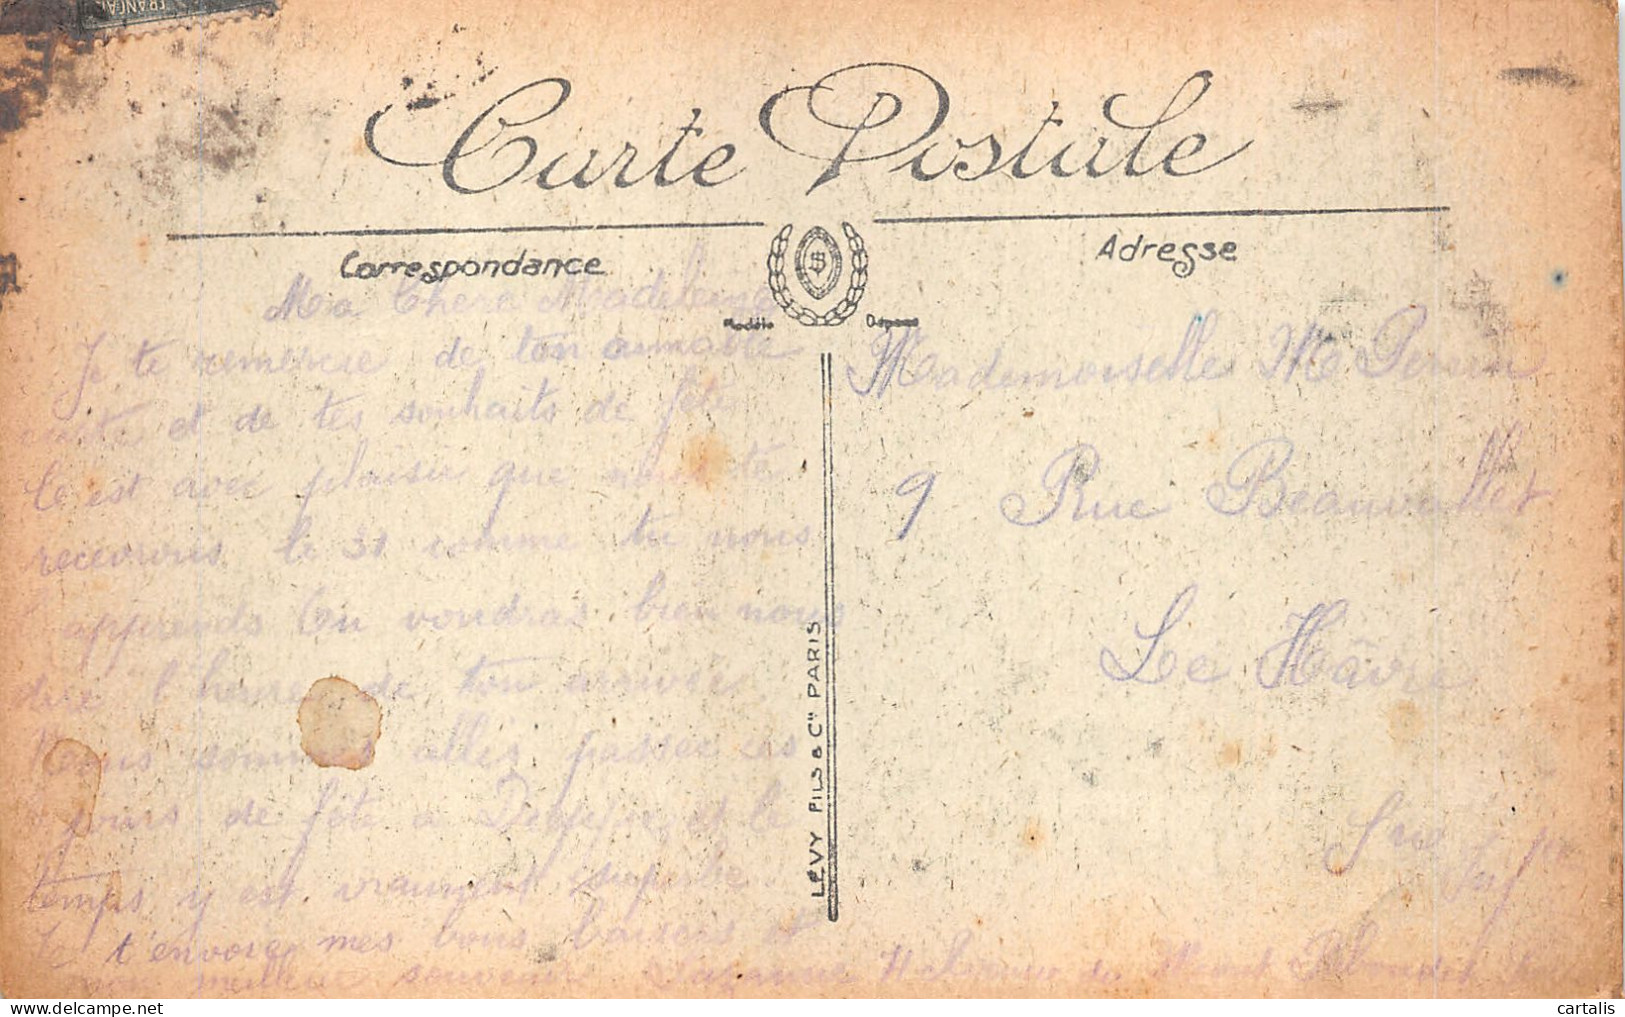 FRANÇAI
Carte Postale
Correspondance
Adresse
Modèle Déposé
Ma Chère Madeleine
Je te remercie de ton aimable
carte et de tes souhaits de fête
C'est avec plaisir que nous te
recevrons le 31 comme tu nous
apprends Tu voudras bien nous
dire l'heure de ton arrivée
Nous sommes allés passer ces
jours de fête a Dieppe et le
temps y est vraiment superbe.
Je t'envoie mes bons baisers et
mon meilleur souvenir Suzanne
LÉVY FILS & Cie PARIS
Mademoiselle M
9 Rue Beauvallet
Le Hâvre
Sne Infre
cartalis